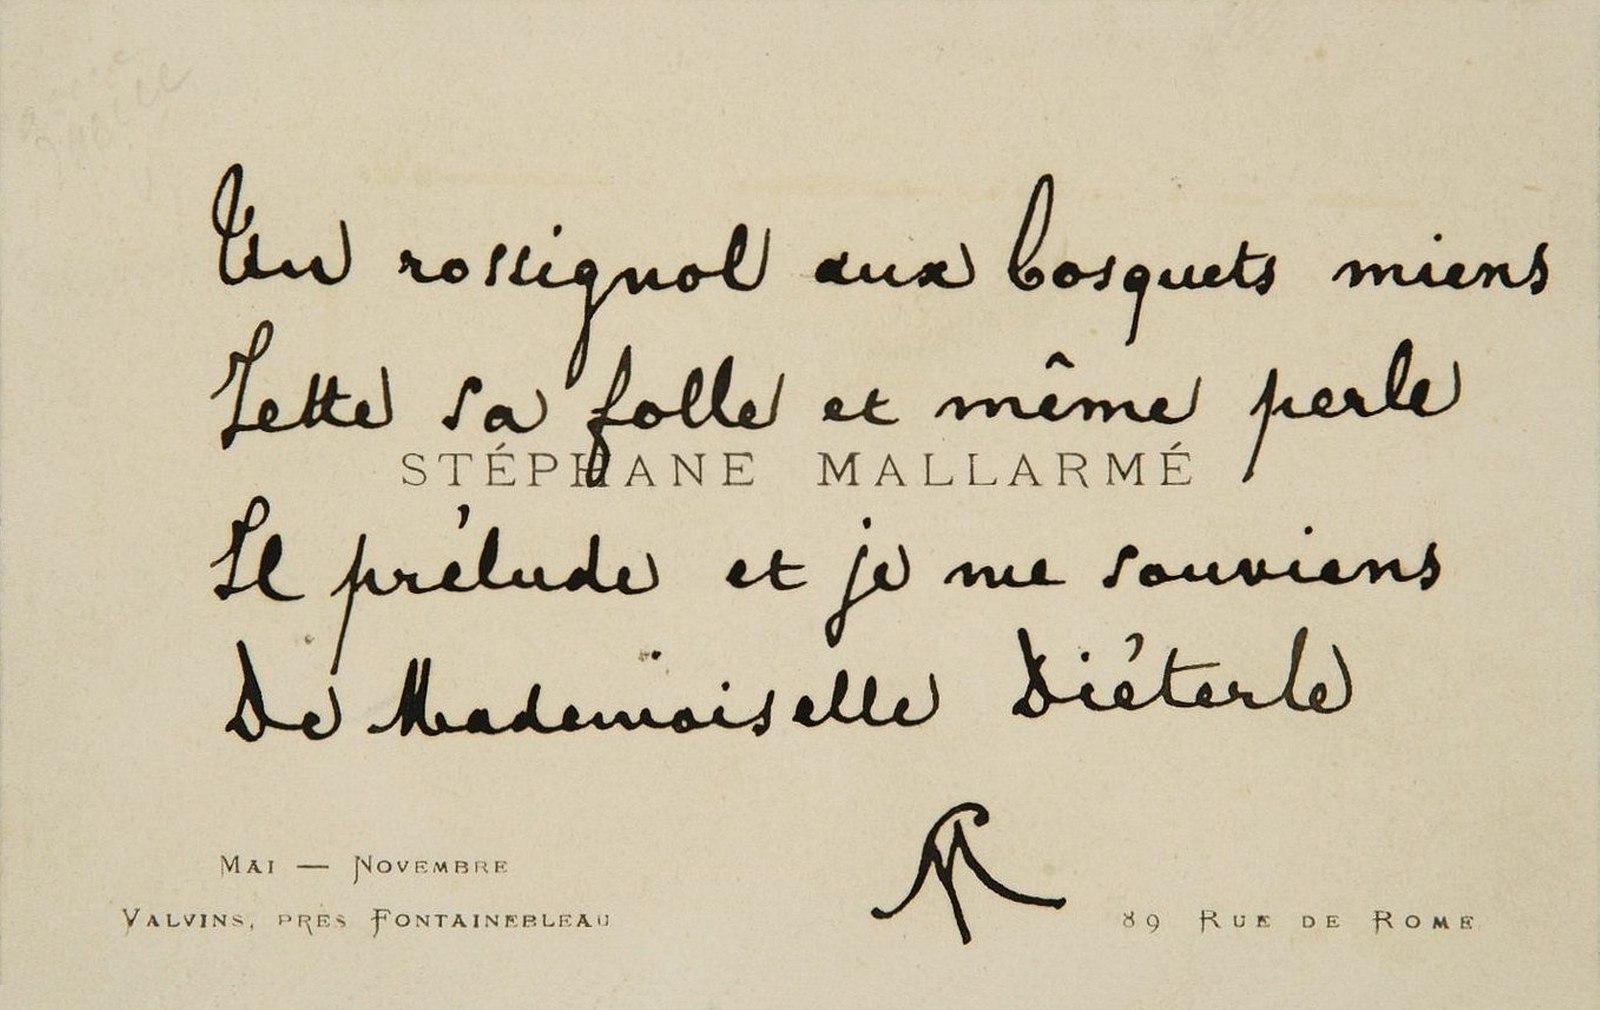 Un rossignol aux bosquets miens
Jette sa folle et même perle
STÉPHANE MALLARMÉ
Il prélude et je me souviens
De Mademoiselle Diéterle
MAI — NOVEMBRE
VALVINS, PRÈS FONTAINEBLEAU
89 RUE DE ROME